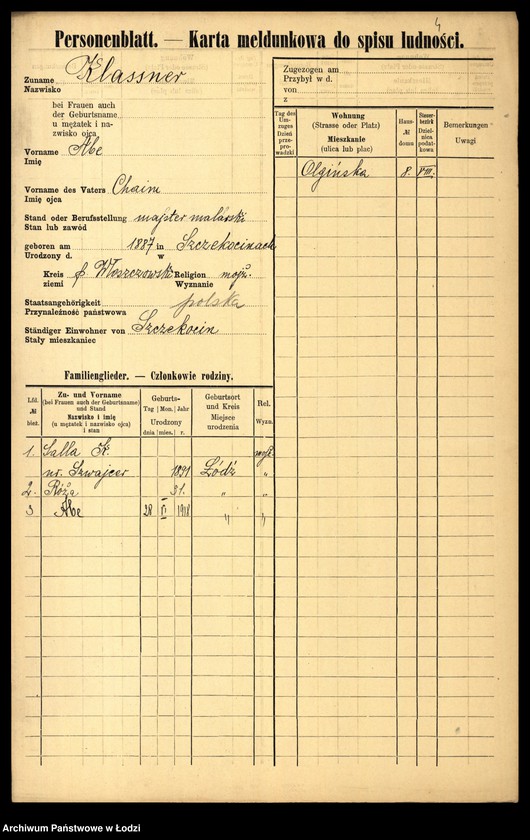 4
Personenblatt. — Karta meldunkowa do spisu ludności.
Zuname Klassner
Nazwisko
bei Frauen auch
der Geburtsname
u mężatek i na-
zwisko ojca
Vorname Abe
Imię
Vorname des Vaters Chaim
Imię ojca
Stand oder Berufsstellung majster malarski
Stan lub zawód
geboren am 1887 in Szczekocinach
Urodzony d. w
Kreis p. Włoszczowski Religion mojż.
ziemi Wyznanie
Staatsangehörigkeit polska
Przynależność państwowa
Ständiger Einwohner von Szczekocin
Stały mieszkaniec
Zugezogen am
Przybył w d.
von
z
Tag des Um-zuges Dzień prze-pro-wadzki
Wohnung (Strasse oder Platz) Mieszkanie (ulica lub plac)
Haus- № domu
Steuer-bezirk Dziel-nica podat-kowa
Bemerkungen Uwagi
Olgińska 8. VIII.
Familienglieder. — Członkowie rodziny.
Lfd. № bież.
Zu- und Vorname (bei Frauen auch der Geburtsname) und Stand Nazwisko i imię (u mężatek i nazwisko ojca) i stan
Geburts- Tag Mon. Jahr Urodzony dnia mies. r.
Geburtsort und Kreis Miejsce urodzenia
Rel. Wyzn.
1. Salla K. mojż.
ur. Szwajcer 1891 Łódź "
2. Róża 31. " "
3 Abe 28 1918 " "
Archiwum Państwowe w Łodzi